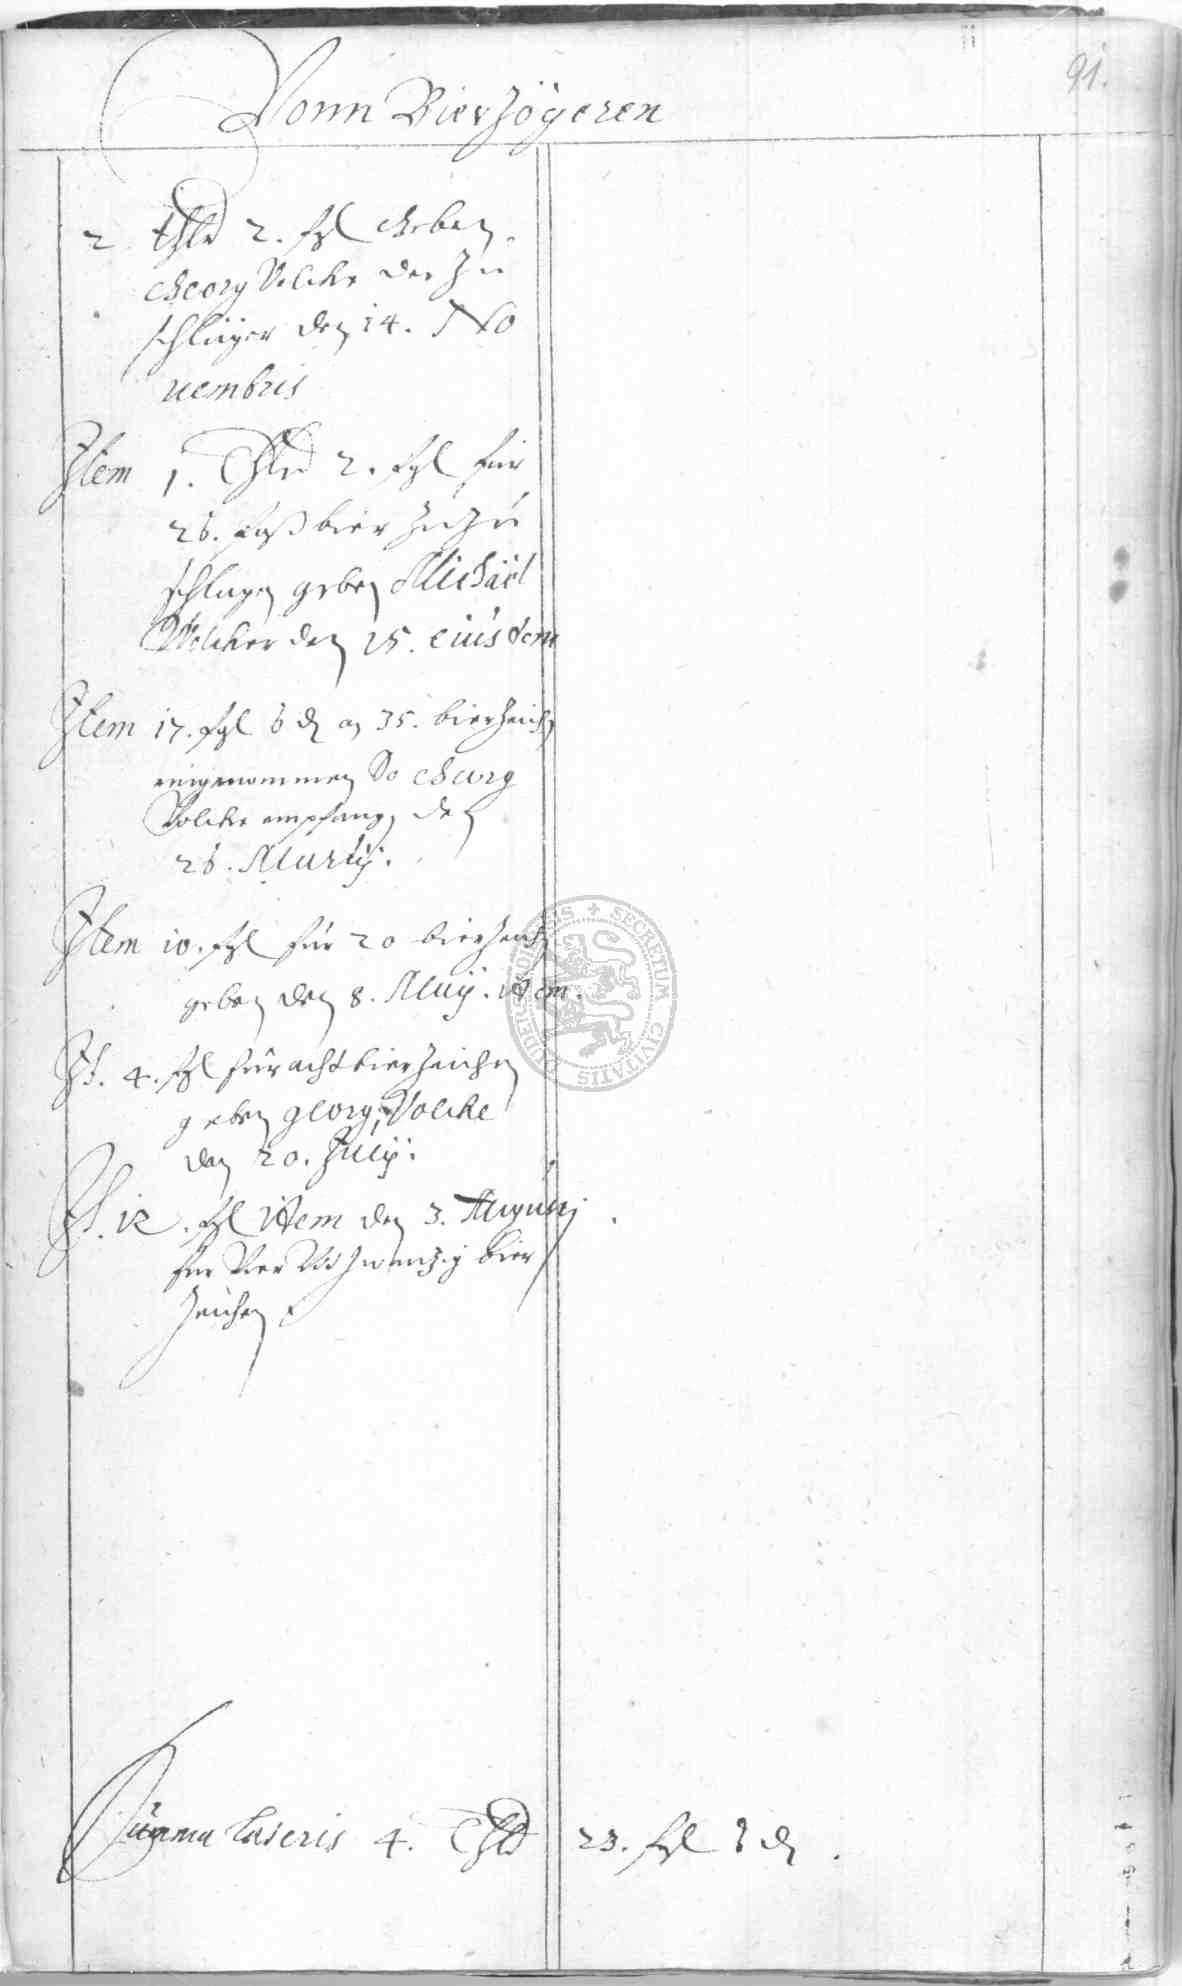 91.
Vonn Bierzögeren
2 thlr 2. ßgl Geben
Georg Volcke der Zu
schläger den 14. No
uembris
Item 1. Thlr 2. ßgl für
26. faß bier Zu Zu
schlagen geben Michäel
Volcker den 15. eiusdem
Item 17. ßgl 6 d 35. bierzeich
eingenommen So Georg
Volcke empfang den
26. Martij.
Item 10. ßgl für 20 bierzeich
geben den 8. Maij. item.
It. 4. ßgl für acht bierzeichen
geben georg Volcke
den 20. Julij.
It. 12. ßgl item den 3. Augusti
für Vier Vnd zwanzig bier
Zeichen
Summa lateris 4. Thlr 23. ßgl d.
SECRETUM CIVITATIS DUDERSTADIENSIS